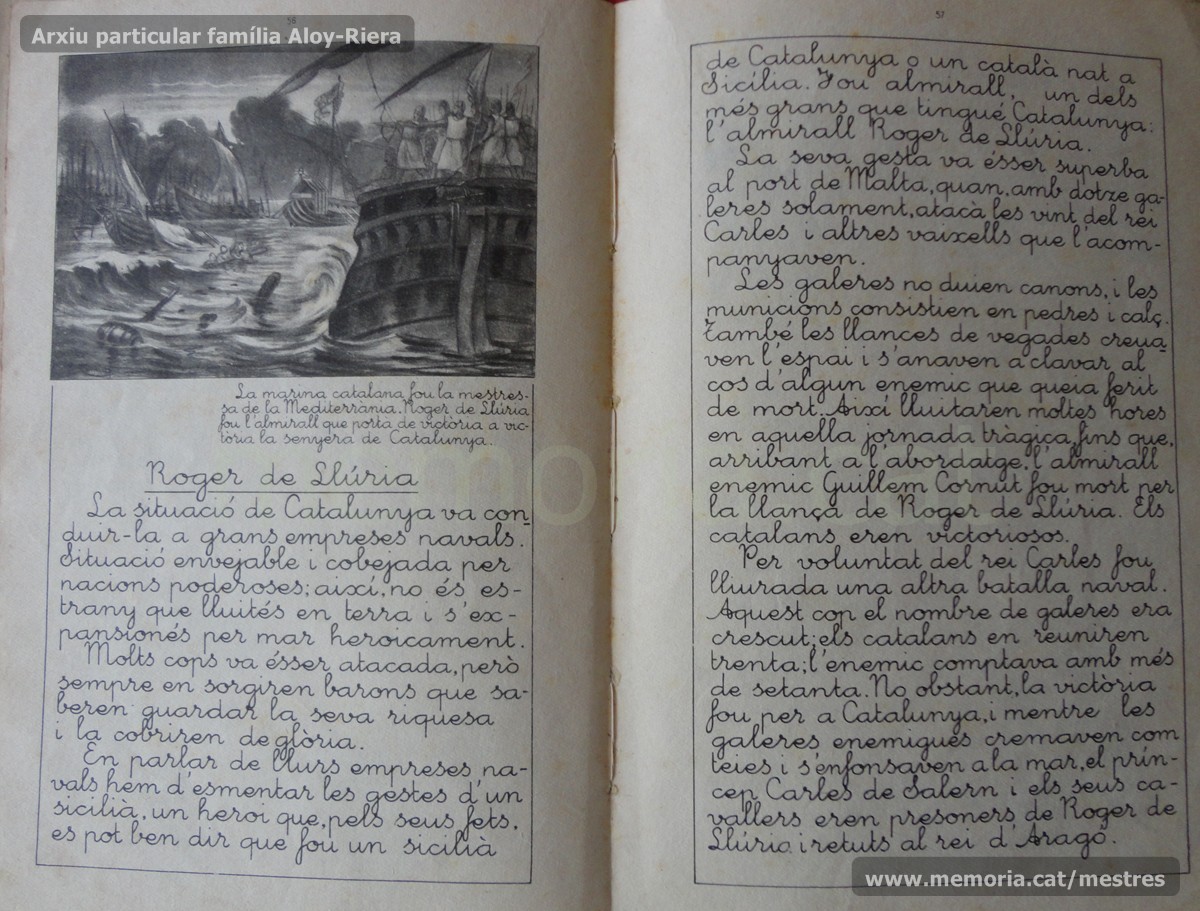 56
Arxiu particular família Aloy-Riera
La marina catalana fou la mestres-
sa de la Mediterrània. Roger de Llúria
fou l'almirall que portà de victòria a vic-
tòria la senyera de Catalunya.
Roger de Llúria
La situació de Catalunya va con-
duir-la a grans empreses navals.
Situació envejable i cobejada per
nacions poderoses; així, no és es-
trany que lluités en terra i s'ex-
pansionés per mar heroicament.
Molts cops va ésser atacada, però
sempre en sorgiren barons que sa-
beren guardar la seva riquesa
i la cobriren de glòria.
En parlar de llurs empreses na-
vals hem d'esmentar les gestes d'un
sicilià, un heroi que, pels seus fets,
es pot ben dir que fou un sicilià
57
de Catalunya o un català nat a
Sicília. Fou almirall, un dels
més grans que tingué Catalunya:
l'almirall Roger de Llúria.
La seva gesta va ésser superba
al port de Malta, quan, amb dotze ga-
leres solament, atacà les vint del rei
Carles i altres vaixells que l'acom-
panyaven.
Les galeres no duien canons, i les
municions consistien en pedres i calç.
També les llances de vegades creua-
ven l'espai i s'anaven a clavar al
cos d'algun enemic que queia ferit
de mort. Així lluitaren moltes hores
en aquella jornada tràgica, fins que,
arribant a l'abordatge, l'almirall
enemic Guillem Cornut fou mort per
la llança de Roger de Llúria. Els
catalans eren victoriosos.
Per voluntat del rei Carles fou
lliurada una altra batalla naval.
Aquest cop el nombre de galeres era
crescut; els catalans en reuniren
trenta; l'enemic comptava amb més
de setanta. No obstant, la victòria
fou per a Catalunya, i mentre les
galeres enemigues cremaven com
teies i s'enfonsaven a la mar, el prín-
cep Carles de Salern i els seus ca-
vallers eren presoners de Roger de
Llúria i retuts al rei d'Aragó.
www.memoria.cat/mestres